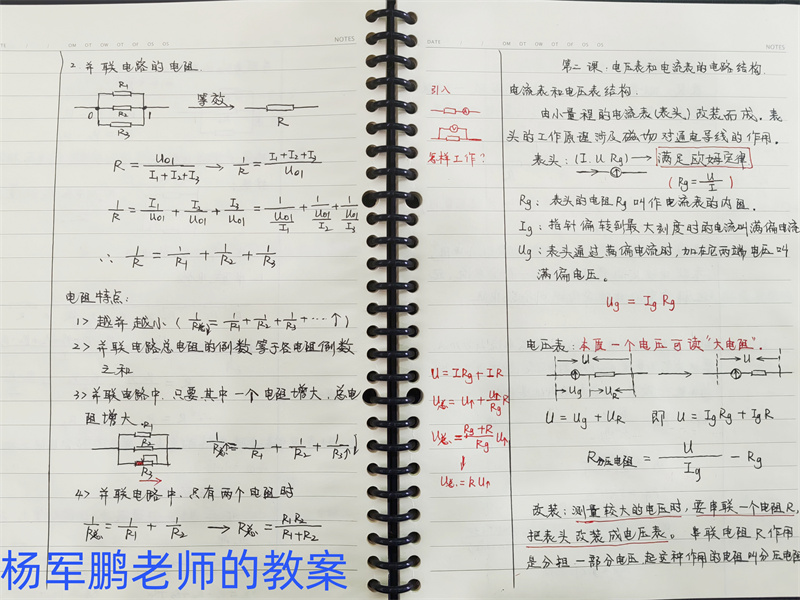 NOTES
2 并联电路的电阻
R1
R2
R3
0
1
等效
R
R = U01 / (I1+I2+I3) → 1/R = (I1+I2+I3) / U01
1/R = I1/U01 + I2/U01 + I3/U01 = 1/(U01/I1) + 1/(U01/I2) + 1/(U01/I3)
∴ 1/R = 1/R1 + 1/R2 + 1/R3
电阻特点：
1> 越并越小 ( 1/R总↓ = 1/R1 + 1/R2 + 1/R3 + ⋯ ↑ )
2> 并联电路总电阻的倒数等于各电阻倒数
之和
3> 并联电路中，只要其中一个电阻增大，总电
阻增大
R1
R2
R3
= 1/R1 + 1/R2 + 1/R3↑
4> 并联电路中，只有两个电阻时
1/R总 = 1/R1 + 1/R2 → R总 = R1R2 / (R1+R2)
杨军鹏老师的教案
DATE
NOTES
引入
怎样工作？
U = IRg + IR
U总 = kU↑
第二课：电压表和电流表的电路结构
电流表和电压表结构：
由小量程的电流表(表头)改装而成。表
头的工作原理涉及磁场对通电导线的作用。
表头：(I. U Rg) → 满足欧姆定律
( Rg = U/I )
Rg：表头的电阻Rg叫作电流表的内阻．
Ig：指针偏转到最大刻度时的电流叫满偏电流
Ug：表头通过满偏电流时，加在它两端电压叫
满偏电压。
Ug = Ig Rg
电压表：本质一个电压可读“大电阻”．
U
U
Ug
UR
U = Ug + UR 即 U = IgRg + IgR
R分压电阻 = U/Ig − Rg
改装：测量较大的电压时，要串联一个电阻R，
把表头改装成电压表。串联电阻R作用
是分担一部分电压 起这种作用的电阻叫分压电阻